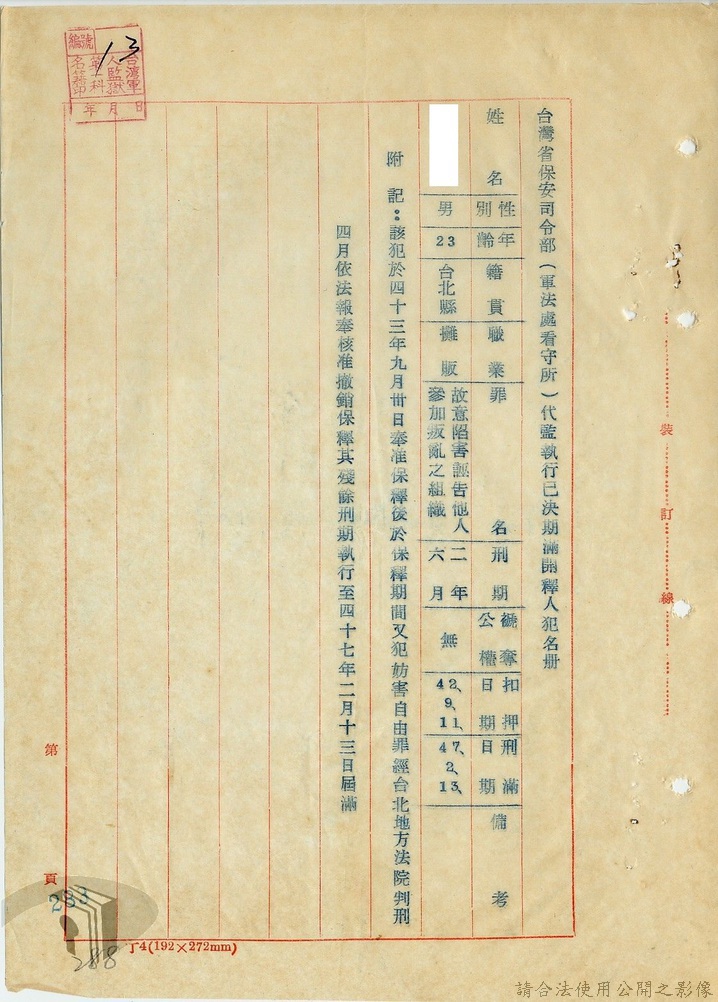 台灣省保安司令部（軍法處看守所）代監執行已決期滿開釋人犯名册
姓名
性別
年齡
籍貫
職業
罪名
刑期
褫奪公權
扣押日期
刑滿日期
備考
男
23
台北縣
攤販
故意陷害誣告他人
參加叛亂之組織
二年
六月
無
42、9、11、
47、2、13、
附記：該犯於四十三年九月卅日奉准保釋後於保釋期間又犯妨害自由罪經台北地方法院判刑
四月依法報奉核准撤銷保釋其殘餘刑期執行至四十七年二月十三日屆滿
裝訂線
編號
13
台灣軍
人監獄
第一科
年月日
第頁
233
288
J4(192×272mm)
請合法使用公開之影像